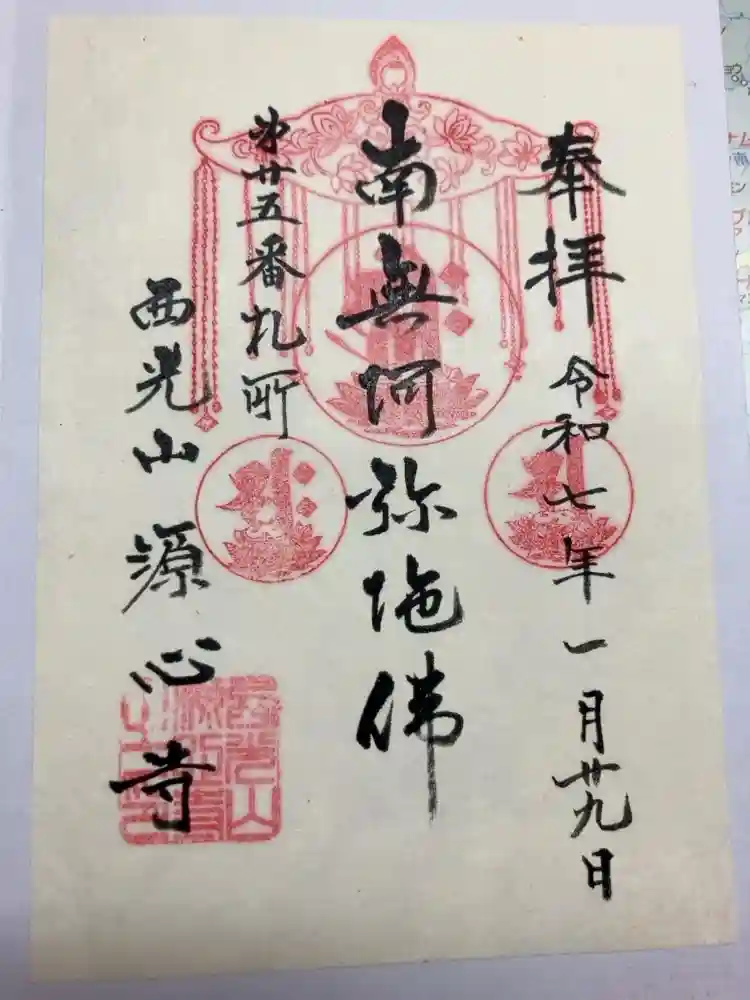 奉拝 令和七年一月廿九日
南無阿弥陀佛
第廿五番札所
西光山 源心寺